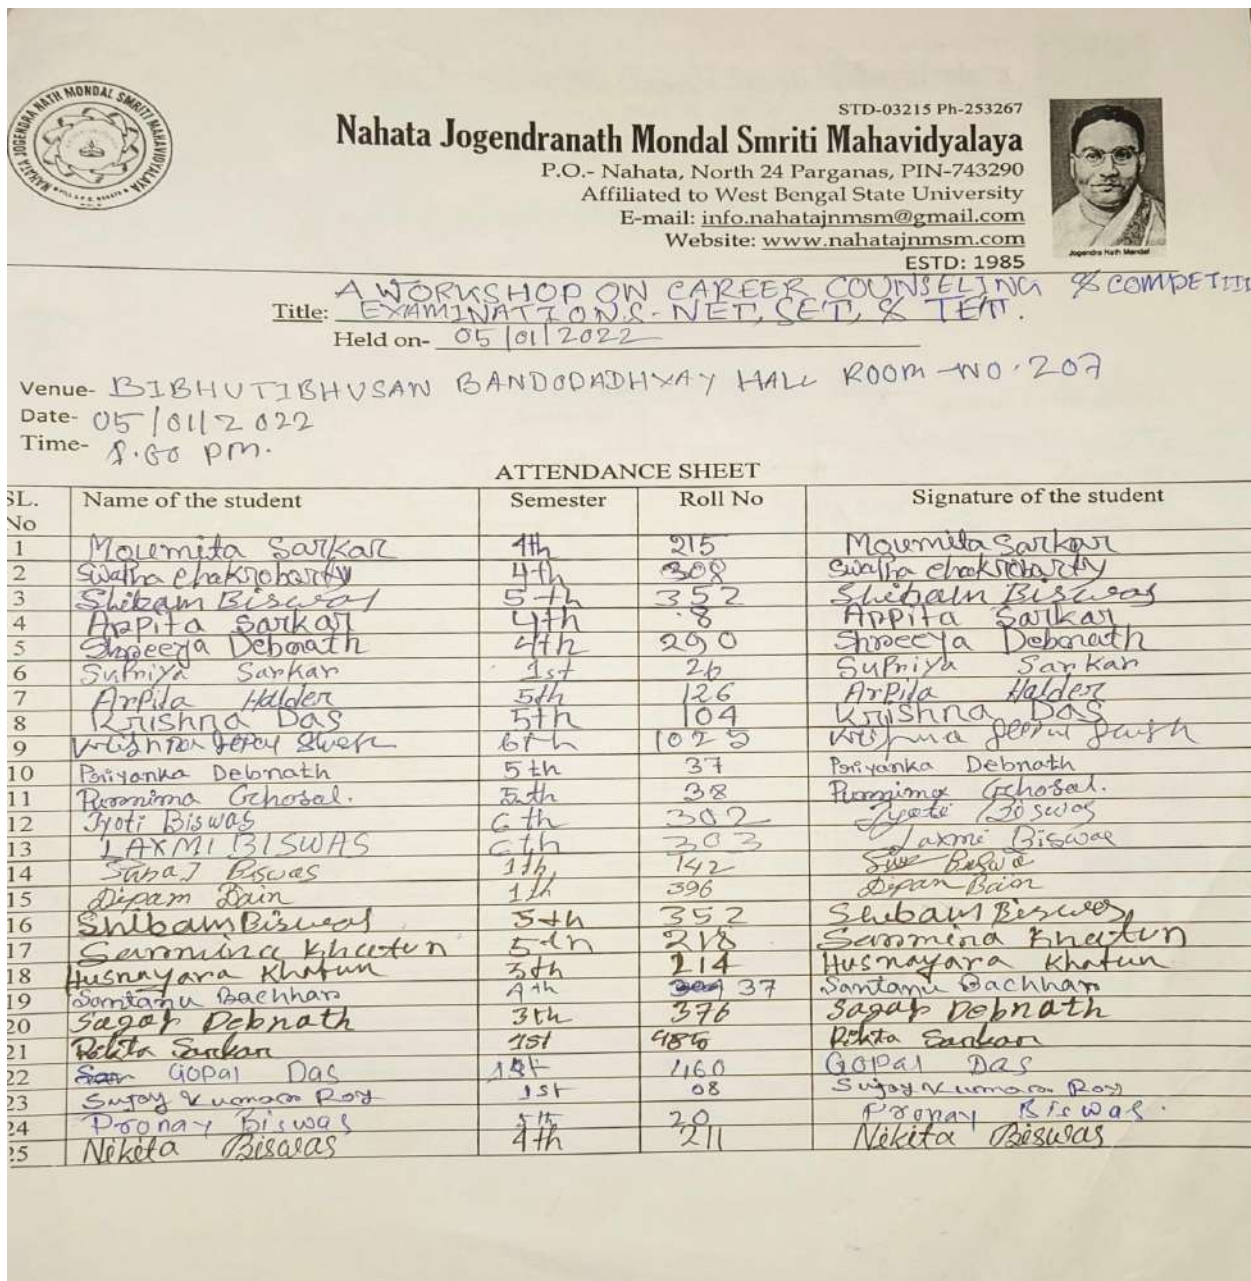 NAHATA JOGENDRA NATH MONDAL SMRITI MAHAVIDYALAYA
STD-03215 Ph-253267
Nahata Jogendranath Mondal Smriti Mahavidyalaya
P.O.- Nahata, North 24 Parganas, PIN-743290
Affiliated to West Bengal State University
E-mail: info.nahatajnmsm@gmail.com
Website: www.nahatajnmsm.com
ESTD: 1985
Jogendra Nath Mandal
A WORKSHOP ON CAREER COUNSELING & COMPETITI
Title: EXAMINATIONS- NET, SET, & TET.
Held on- 05/01/2022
Venue- BIBHUTIBHUSAN BANDODADHYAY HALL ROOM-NO.207
Date- 05/01/2022
Time- PM.
ATTENDANCE SHEET
SL. No Name of the student Semester Roll No Signature of the student
1 Moumita Sarkar 4th 215 Moumita Sarkar
2 Swapna Chakroborty 4th 308 Swapna Chakroborty
3 Shibam Biswas 5th 352 Shibam Biswas
4 Arpita Sarkar 4th 8 Arpita Sarkar
5 Shreeya Debnath 4th 290 Shreeya Debnath
6 Supriya Sarkar 1st 26 Supriya Sarkar
7 Arpita Halder 5th 126 Arpita Halder
8 Krishna Das 5th 104 Krishna Das
9 Krishna 6th 1025 Krishna
10 Priyanka Debnath 5th 37 Priyanka Debnath
11 Purnima Ghosal. 5th 38 Purnima Ghosal.
12 Jyoti Biswas 6th 302 Jyoti Biswas
13 LAXMI BISWAS 6th 303 Laxmi Biswas
14 Biswas 1th 142
15 Dipam Bain 1th 396 Dipan Bain
16 Shibam Biswas 5th 352 Shibam Biswas
17 Sarmina Khatun 5th 218 Sarmina Khatun
18 Husnayara Khatun 5th 214 Husnayara Khatun
19 Santanu Bachhar 4th 37 Santanu Bachhar
20 Sagar Debnath 3th 376 Sagar Debnath
21 Rikita Sarkar 1st Rikita Sarkar
22 Gopal Das 1st 460 Gopal Das
23 Sujoy Kumar Roy 1st 08 Sujoy Kumar Roy
24 Pronay Biswas 5th 20 Pronay Biswas.
25 Nikita Biswas 4th 211 Nikita Biswas